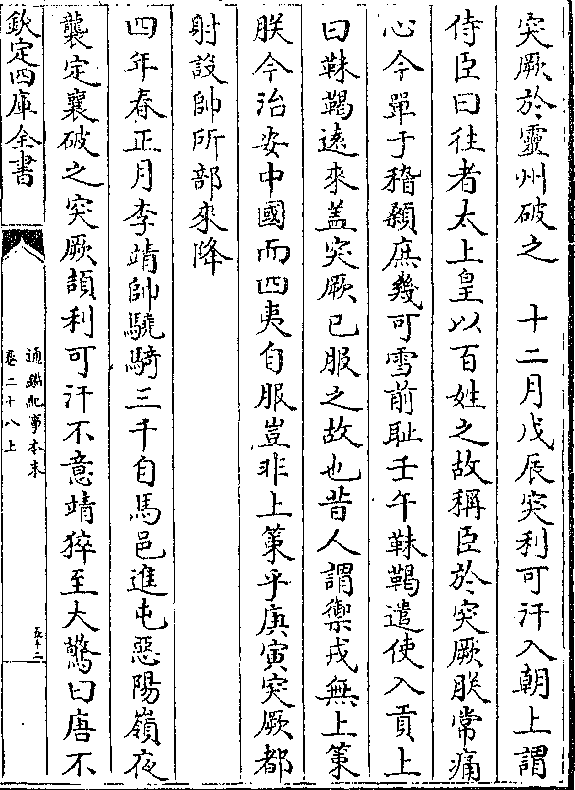 突厥於靈州破之　十二月戊辰突利可汗入朝上謂
侍臣曰往者太上皇以百姓之故稱臣於突厥朕常痛
心今單于稽顙庶幾可雪前耻壬午靺鞨遣使入貢上
曰靺鞨遠來盖突厥已服之故也昔人謂禦戎無上策
朕今治安中國而四夷自服豈非上策乎庚寅突厥都
射設帥所部來降
四年春正月李靖帥驍騎三千自馬邑進屯惡陽嶺夜
襲定襄破之突厥頡利可汗不意靖猝至大驚曰唐不
欽定四庫全書
通鑑紀事本末
卷二十八上
五十二